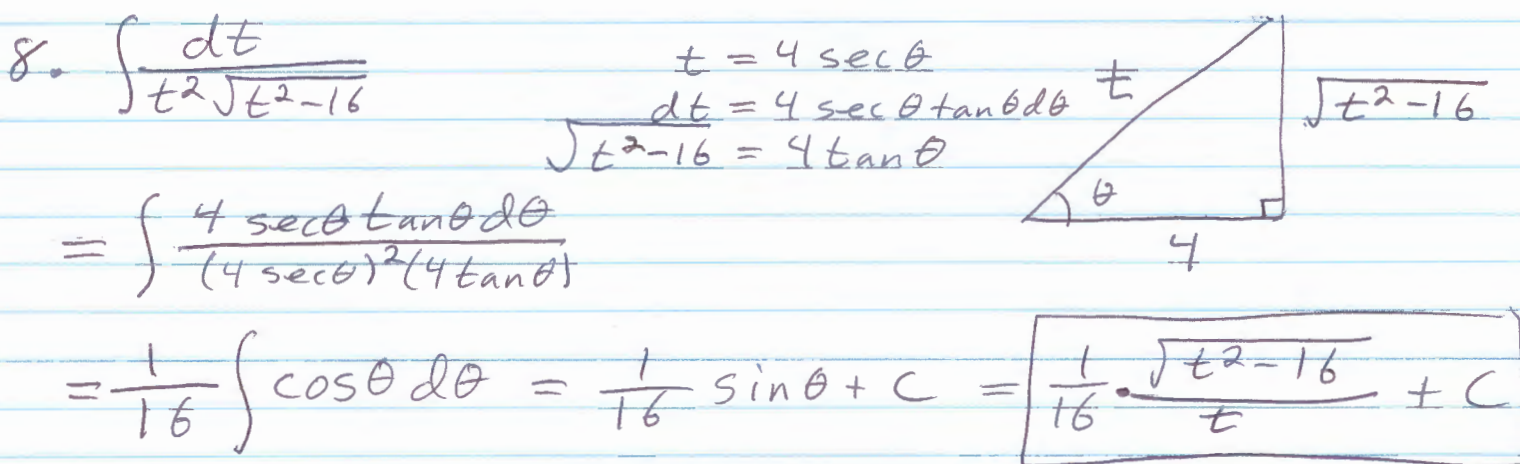 8. ∫ dt / (t² √(t²-16))
t = 4 sec θ
dt = 4 sec θ tan θ dθ
√(t²-16) = 4 tan θ
t
√(t²-16)
θ
4
= ∫ 4 sec θ tan θ dθ / ((4 sec θ)² (4 tan θ))
= 1/16 ∫ cos θ dθ = 1/16 sin θ + C = 1/16 · √(t²-16) / t + C